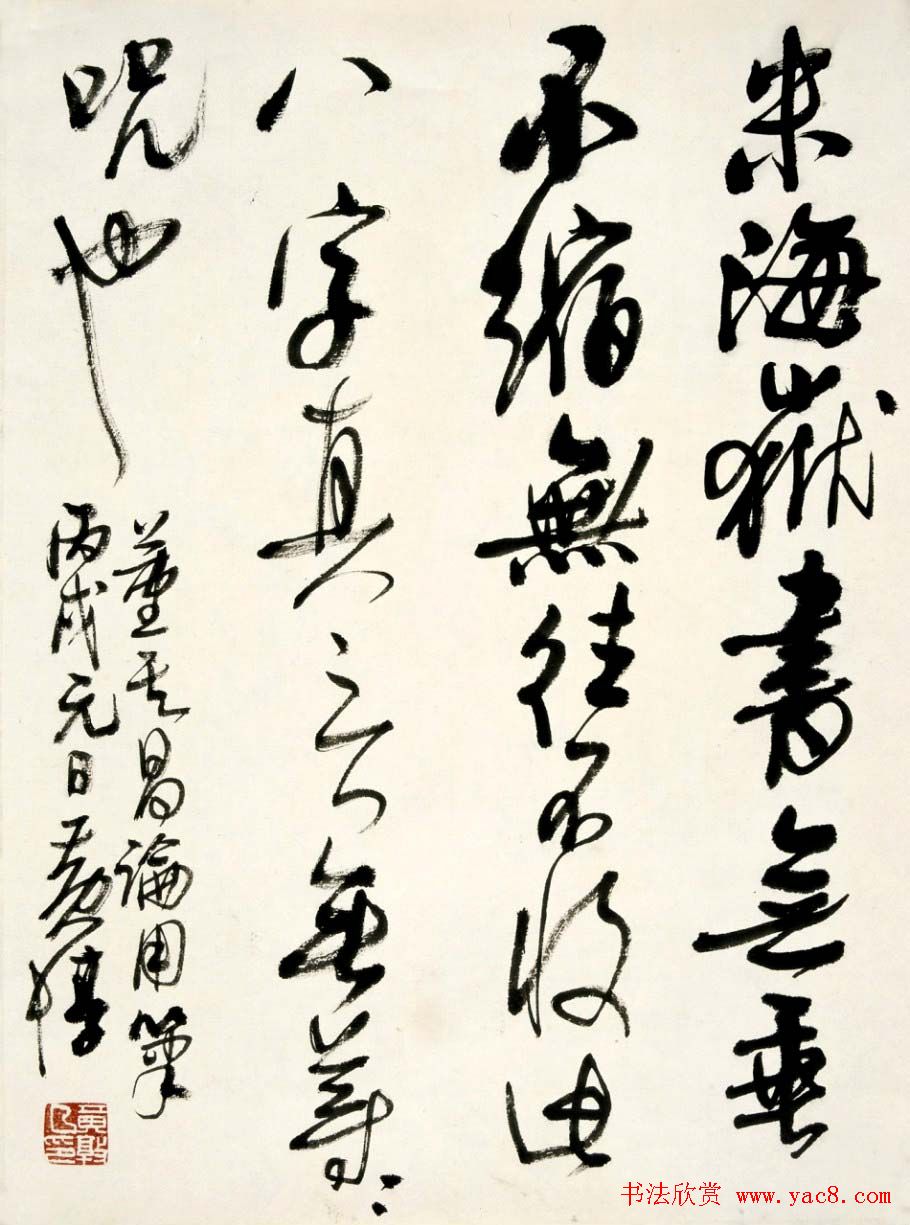 米海嶽書無垂
不縮無往不收此
八字真言無等〻
呪也
董其昌論用筆
丙戌元日黄惇
书法欣赏 www.yac8.com